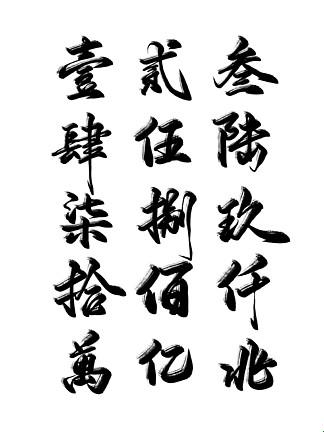 壹貳叁
肆伍陆
柒捌玖
拾佰仟
萬亿兆